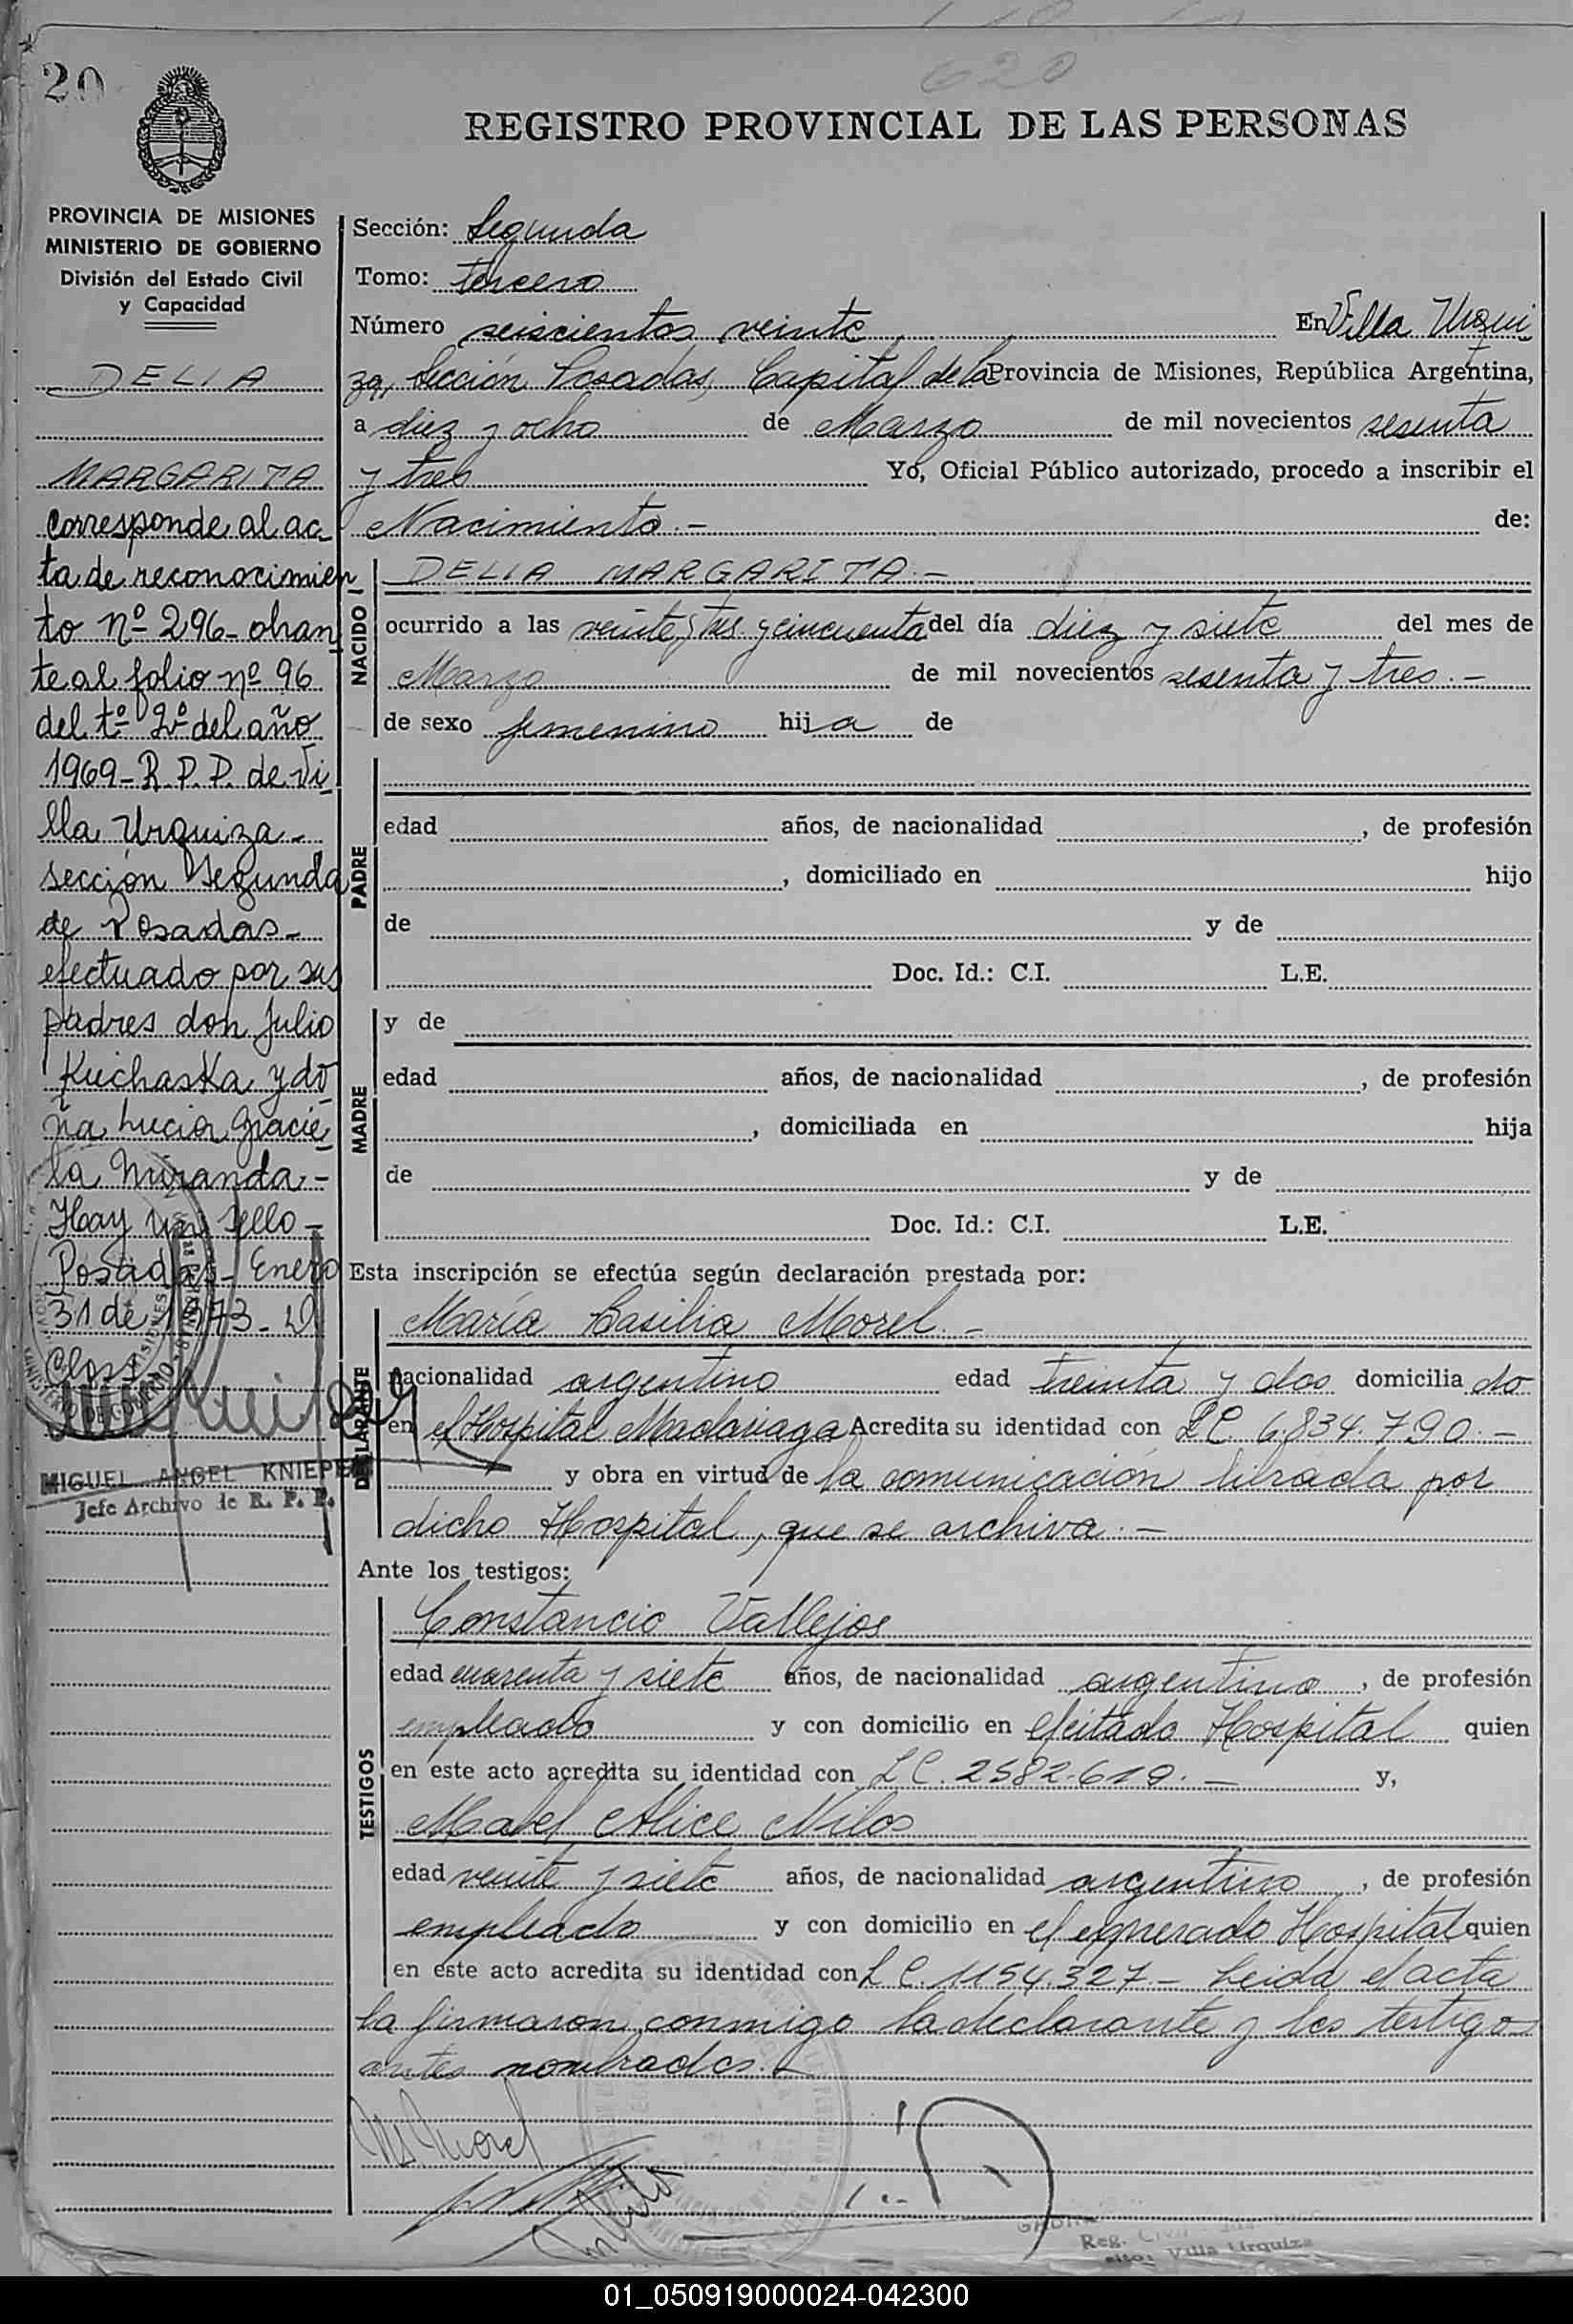 620
20
REGISTRO PROVINCIAL DE LAS PERSONAS
PROVINCIA DE MISIONES
MINISTERIO DE GOBIERNO
División del Estado Civil
y Capacidad
DELIA
MARGARITA
Corresponde al ac-
ta de reconocimien
to nº 296- obran
te al folio nº 96
del tº 2º del año
1969- R.P.P. de Vi
lla Urquiza-
sección Segunda
de Posadas-
efectuado por sus
padres don Julio
Kuchaska y do
ña Lucia Gracie
la Miranda-
Hay un sello-
Posadas- Enero
31 de 1973-
MIGUEL ANGEL KNIEPE
Jefe Archivo de R. P. P.
Sección: Segunda
Tomo: tercero
Número seiscientos veinte En Villa Urqui
za, Sección Posadas, Capital de la Provincia de Misiones, República Argentina,
a diez y ocho de Marzo de mil novecientos sesenta
y tres Yo, Oficial Público autorizado, procedo a inscribir el
Nacimiento.- de:
NACIDO
DELIA MARGARITA.-
ocurrido a las veinte y tres y cincuenta del día diez y siete del mes de
Marzo de mil novecientos sesenta y tres.-
de sexo femenino hija de
PADRE
edad años, de nacionalidad , de profesión
, domiciliado en hijo
de y de
Doc. Id.: C.I. L.E.
MADRE
y de
edad años, de nacionalidad , de profesión
, domiciliada en hija
de y de
Doc. Id.: C.I. L.E.
Esta inscripción se efectúa según declaración prestada por:
DECLARANTE
María Basilia Morel.-
nacionalidad argentino edad treinta y dos domicilia do
en el Hospital Madariaga Acredita su identidad con L.C. 6.834.790.-
y obra en virtud de la comunicación librada por
dicho Hospital, que se archiva.-
Ante los testigos:
TESTIGOS
Constancio Vallejos
edad cuarenta y siete años, de nacionalidad argentino, de profesión
empleado y con domicilio en el citado Hospital quien
en este acto acredita su identidad con L.C. 2582.619.- y,
Mabel Alice Nilos
edad veinte y siete años, de nacionalidad argentino, de profesión
empleado y con domicilio en el expresado Hospital quien
en este acto acredita su identidad con L C. 1154.327.- Leida el acta
la firmaron conmigo la declarante y los testigos
antes nombrados.-
Morel
Reg. Civil
Villa Urquiza
01_050919000024-042300